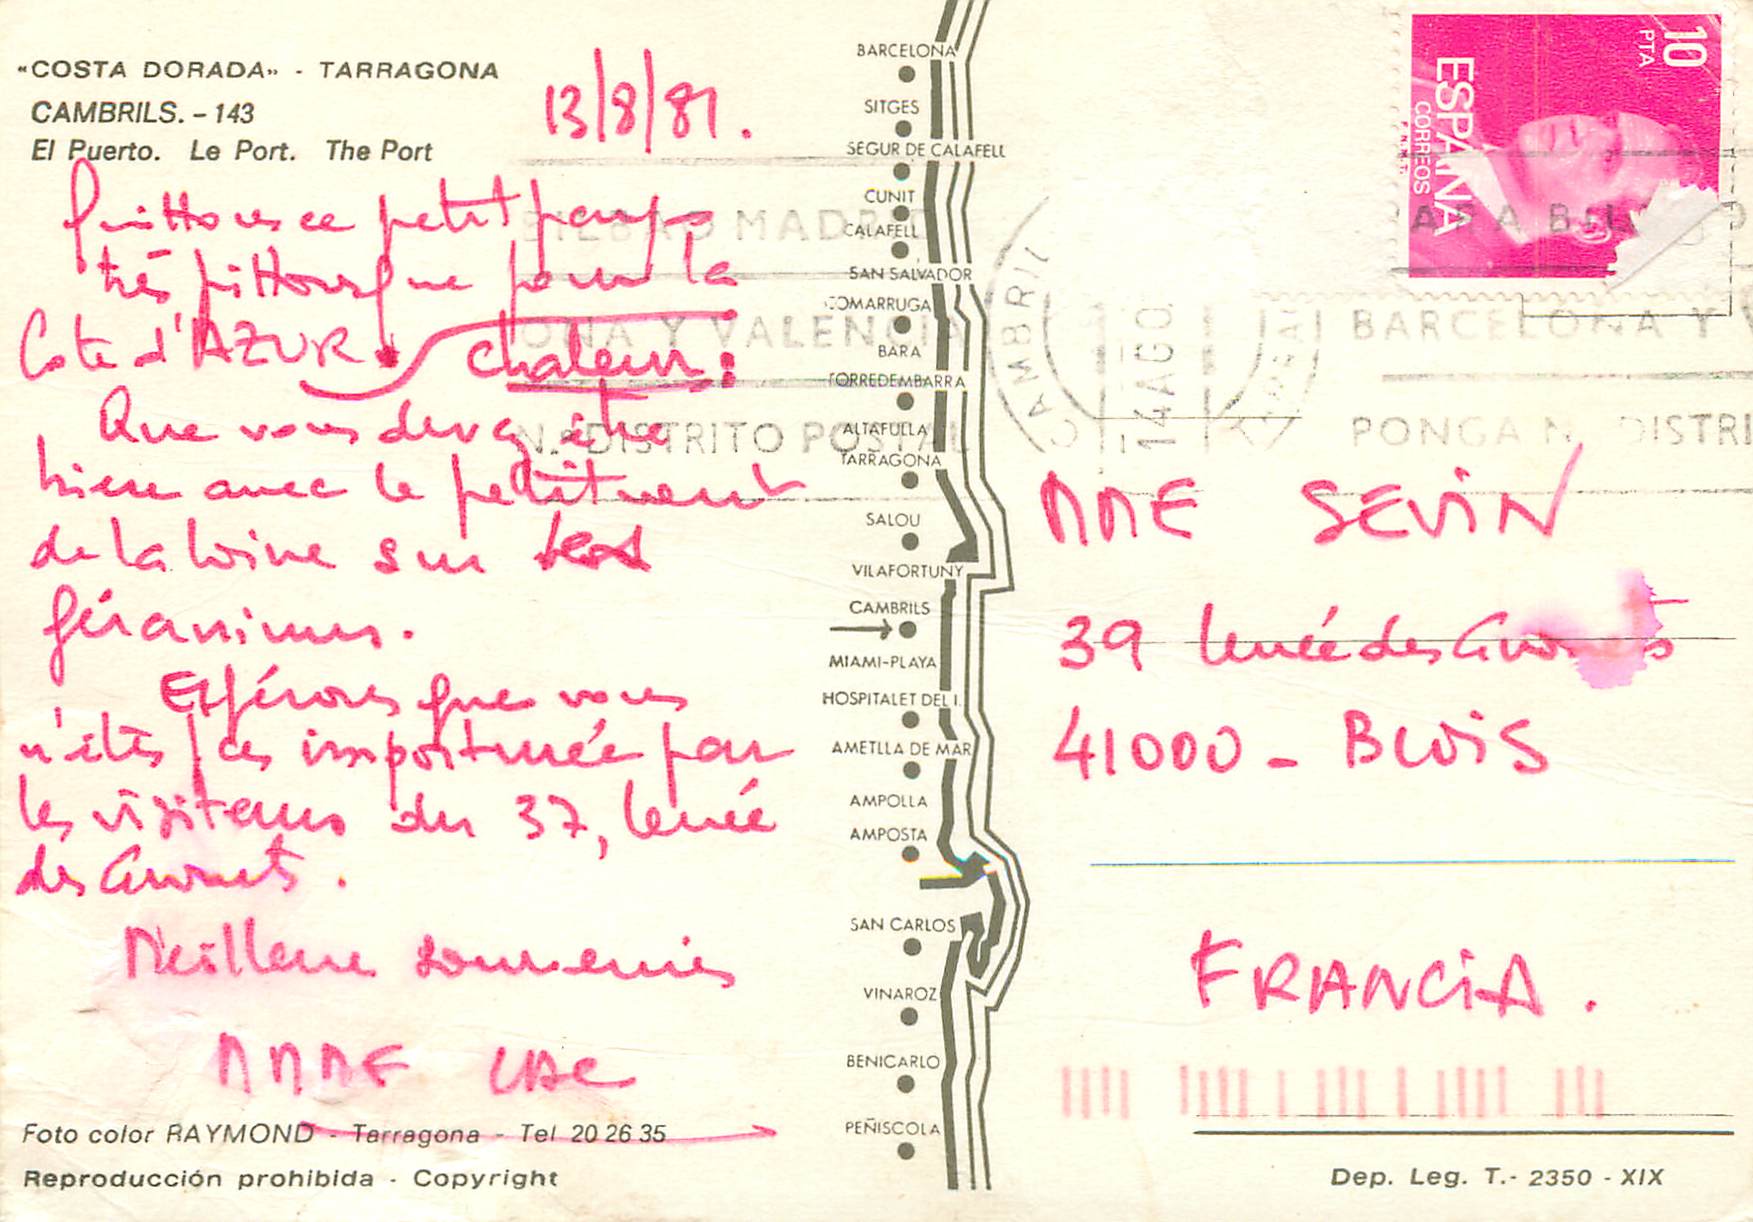 «COSTA DORADA» - TARRAGONA
CAMBRILS. - 143
El Puerto. Le Port. The Port
13/8/81.
Quittons ce petit pays
très pittoresque pour la
Cote d'AZUR. chaleur:
Que vous devez être
bien avec le petit vent
de la Loire sur les
géraniums.
Espérons que vous
n'êtes pas importunée par
les visiteurs du 37, levée
des Grouets.
Meilleurs souvenirs
Foto color RAYMOND - Tarragona - Tel 20 26 35
Reproducción prohibida - Copyright
BARCELONA
SITGES
SEGUR DE CALAFELL
CUNIT
CALAFELL
SAN SALVADOR
COMARRUGA
BARA
TORREDEMBARRA
ALTAFULLA
TARRAGONA
SALOU
VILAFORTUNY
CAMBRILS
MIAMI-PLAYA
HOSPITALET DEL I.
AMETLLA DE MAR
AMPOLLA
AMPOSTA
SAN CARLOS
VINAROZ
BENICARLO
PEÑISCOLA
10 PTA
ESPAÑA
CORREOS
F.N.M.T.
BILBAO MADRID
ONA Y VALENCIA
N. DISTRITO POSTAL
CAMBRIL
14 AGO
ARA BIL
BARCELONA Y V
PONGAN DISTRI
MME SEVIN
39 levée des Grouets
41000 - BLOIS
FRANCIA.
Dep. Leg. T.- 2350 - XIX